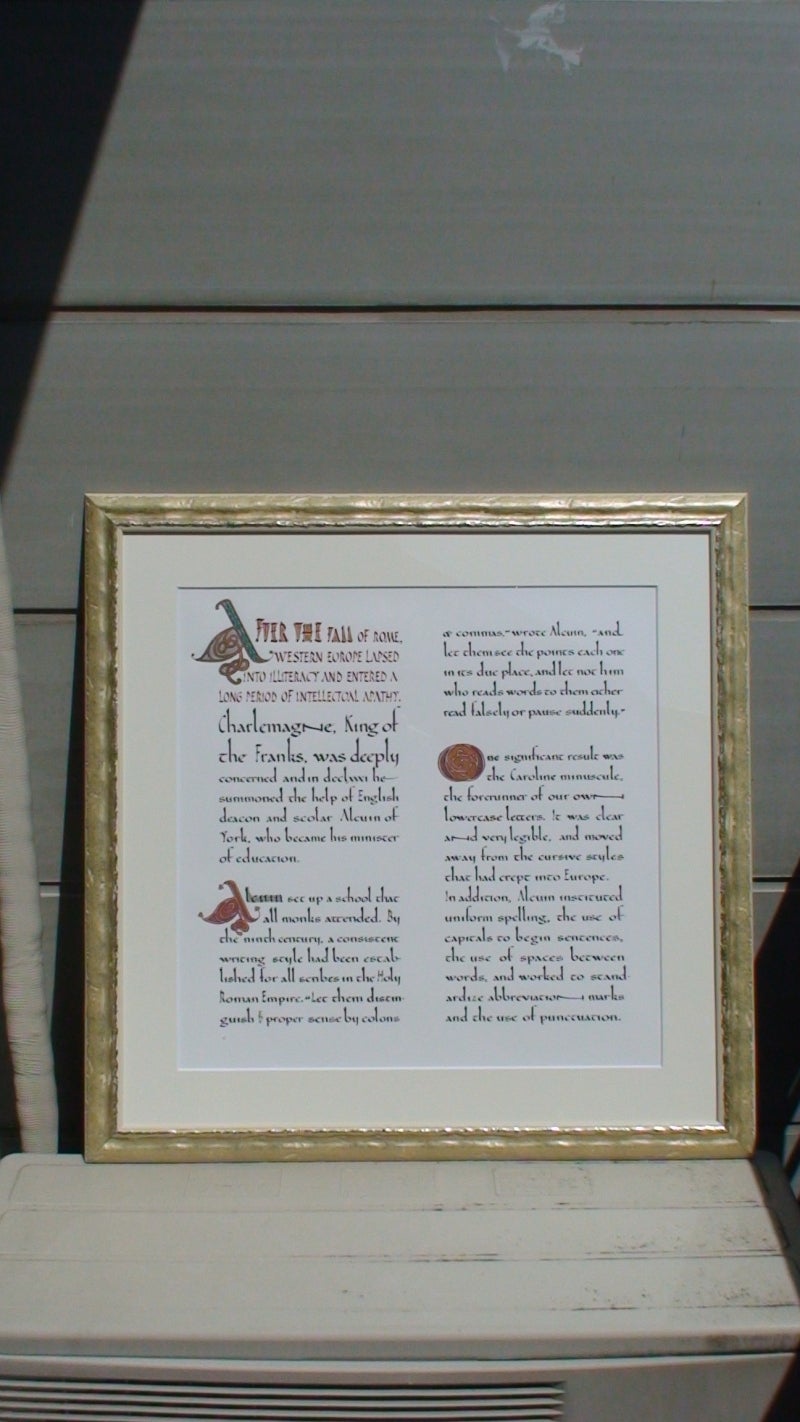 AFTER THE FALL OF ROME,
WESTERN EUROPE LAPSED
INTO ILLITERACY AND ENTERED A
LONG PERIOD OF INTELLECTUAL APATHY.
Charlemagne, King of
the Franks, was deeply
concerned and in dcclxxxi he
summoned the help of English
deacon and scolar Alcuin of
York, who became his minister
of education.
Alcuin set up a school that
all monks attended. By
the ninth century, a consistent
writing style had been estab-
lished for all scribes in the Holy
Roman Empire. "Let them distin-
guish & proper sense by colons
& commas," wrote Alcuin, "and
let them see the points each one
in its due place, and let not him
who reads words to them other
read falsely or pause suddenly."
One significant result was
the Caroline minuscule,
the forerunner of our own
lowercase letters. It was clear
and very legible, and moved
away from the cursive styles
that had crept into Europe.
In addition, Alcuin instituted
uniform spelling, the use of
capitals to begin sentences,
the use of spaces between
words, and worked to stand-
ardize abbreviation marks
and the use of punctuation.